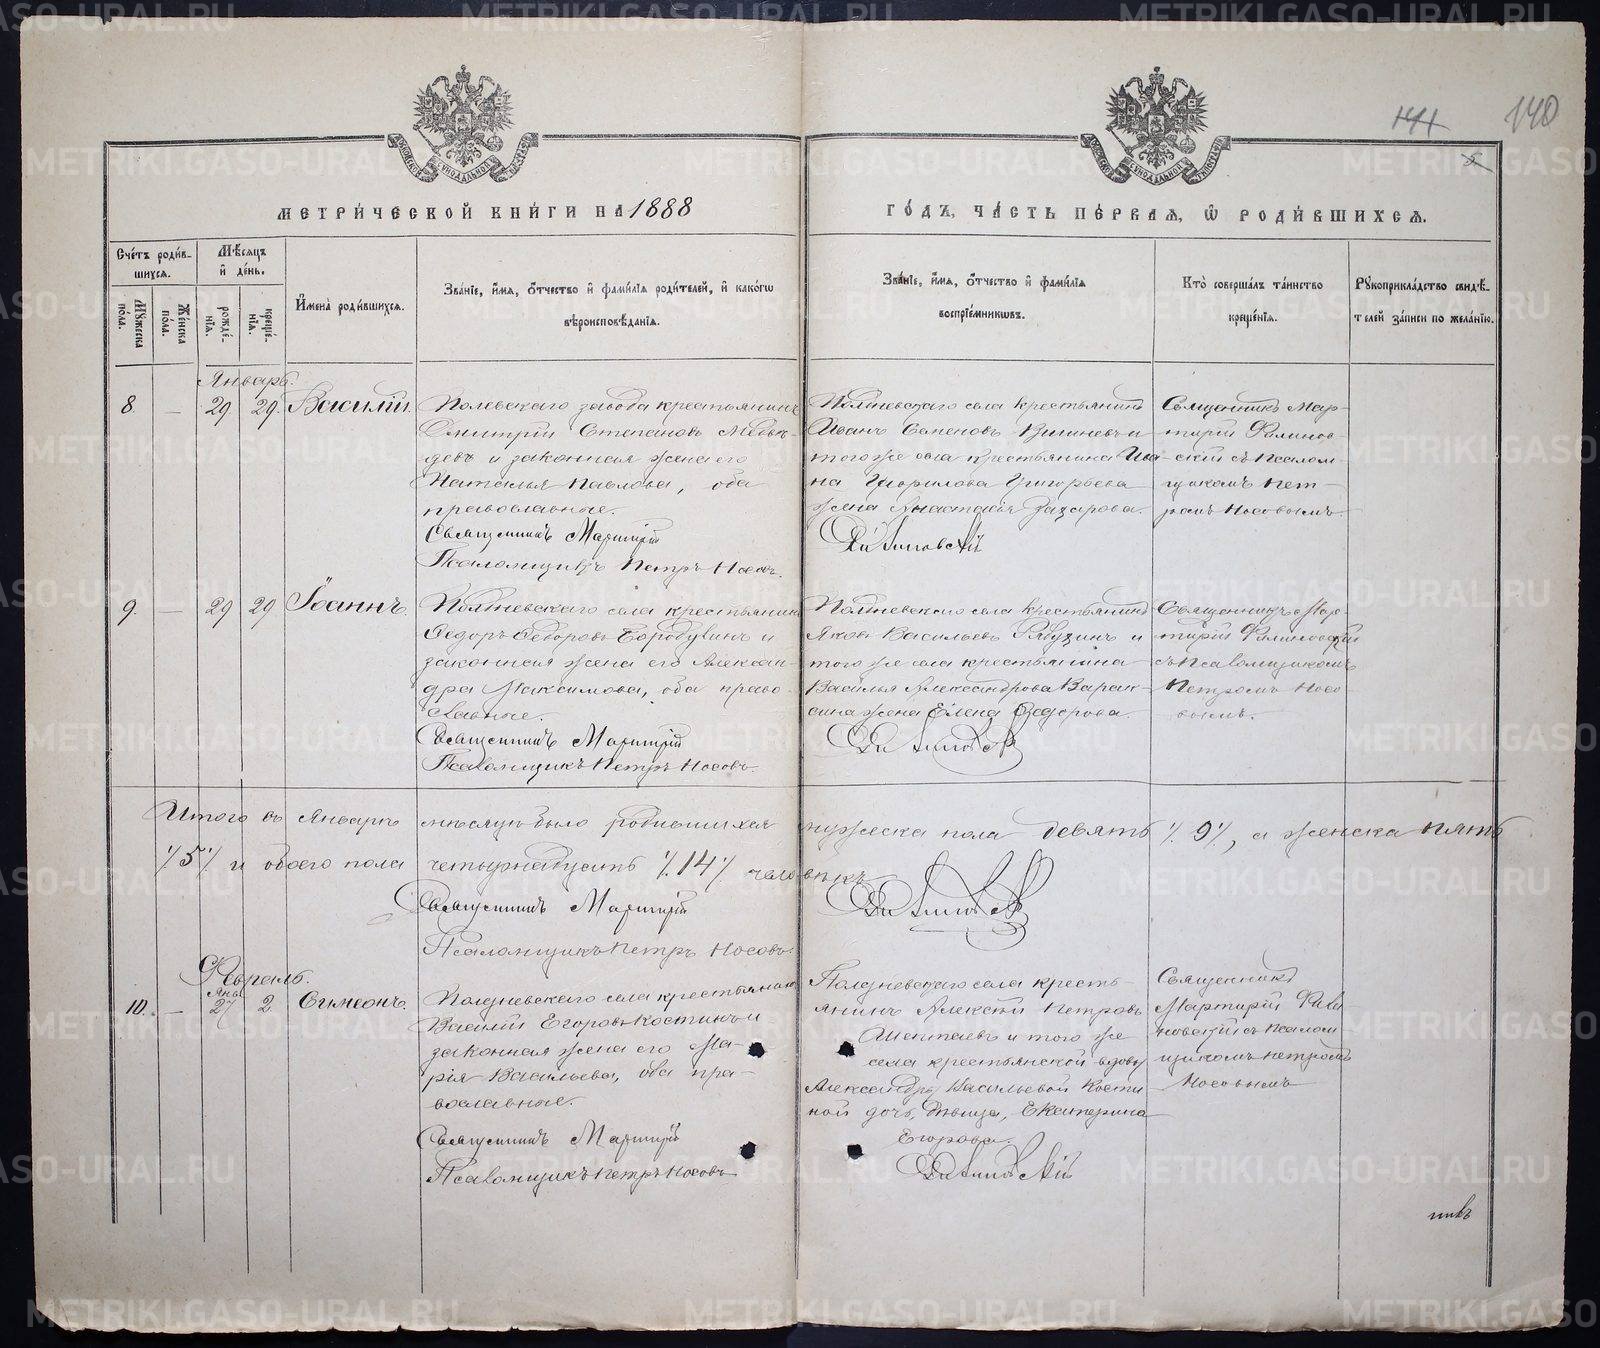 141 140
5
МЕТРИ́ЧЕСКОЙ КНИ́ГИ НА 1888 ГО́ДЪ, ЧА́СТЬ ПЕ́РВАЯ, Ѿ РОДИ́ВШИХСЯ.
Сче́тъ роди́в-
шихся.
Мꙋжеска пола.
Же́нска по́ла.
Мѣ́сяцъ
и́ де́нь.
рожде́-
нїя.
креще́-
нїя.
И҆мена̀ роди́вшихся.
Зва́нїе, и҆́мя, ѻ҆́тчество и҆ фамѝлїя роди́телей, и҆ како́гѡ
вѣроисповѣ́данїя.
Зва́нїе, и҆́мя, ѻ҆́тчество и҆ фамѝлїя
воспрїе́мникѡвъ.
Кто̀ соверша́лъ та́инство
креще́нїя.
Рꙋкоприкла́дство свидѣ́-
телей за́писи по жела́нїю.
Январь.
8. — 29 29. Василій.
Полевскаго завода крестьянинъ
Дмитрій Степановъ Медвѣ-
девъ и законная жена его
Наталья Павлова, оба
православные.
Священникъ Мартирій
Псаломщикъ Петръ Носовъ.
Полдневскаго села крестьянинъ
Иванъ Семеновъ и
того же села крестьянина Ива-
на Гаврилова Григорьева
жена Анастасія Захарова.
Филиновскій
Священникъ Мар-
тирій Филинов-
скій съ псалом-
щикомъ Пет-
ромъ Носовымъ
9. — 29 29 Іоаннъ.
Полдневскаго села крестьянинъ
Федоръ Федоровъ и
законная жена его Алексан-
дра Максимова, оба право-
славные.
Священникъ Мартирій
Псаломщикъ Петръ Носовъ.
Полдневскаго села крестьянинъ
Яковъ Васильевъ Рябухинъ и
того же села крестьянина
Василья Александрова Варак-
сина жена Елена Федорова.
Филиновскій
Священникъ Мар-
тирій Филиновскій
съ псаломщикомъ
Петромъ Носо-
вымъ.
Итого въ Январѣ мѣсяцѣ было родившихся мужеска пола девять /.9/., а женска пять
/.5/. и обоего пола четырнадцать /.14/. человѣкъ.
Священникъ Мартирій Филиновскій
Псаломщикъ Петръ Носовъ.
Февраль.
Янв.
10. — 27 2. Симеонъ.
Полдневскаго села крестьянинъ
Василій Егоровъ Костинъ и
законная жена его Ма-
рія Васильева, оба пра-
вославные.
Священникъ Мартирій
Псаломщикъ Петръ Носовъ
Полдневскаго села кресть-
янинъ Алексѣй Петровъ
и того же
села крестьянской вдовы
Александры Васильевой Кости-
ной дочь, дѣвица, Екатерина
Егорова.
Филиновскій
Священникъ
Мартирій Фили-
новскій съ псалом-
щикомъ Петромъ
Носовымъ
METRIKI.GASO-URAL.RU